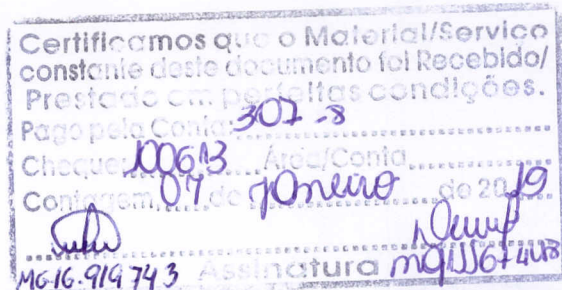 Certificamos que o Material/Serviço
constante deste documento foi Recebido/
Prestado em perfeitas condições.
Pago pela Conta 307-8
Cheque 100613 Área/Conta
Contagem 07 de Janeiro de 2019
MG16.919743 Assinatura